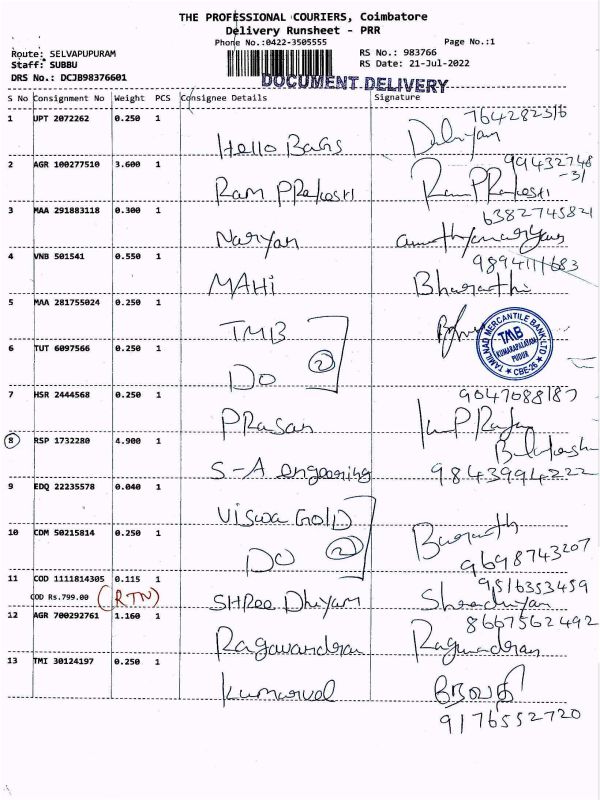 THE PROFESSIONAL COURIERS, Coimbatore
Delivery Runsheet - PRR
Phone No.:0422-3505555 Page No.:1
Route: SELVAPUPURAM RS No.: 983766
Staff: SUBBU RS Date: 21-Jul-2022
DRS No.: DCJB98376601
DOCUMENT DELIVERY
S No Consignment No Weight PCS Consignee Details Signature
1 UPT 2072262 0.250 1 Hello Bags 7642823516
2 AGR 100277510 3.600 1 Ram PRakosh Ram PRakosh 99432748-31
3 MAA 291883118 0.300 1 Naryan 6382745821
4 VNB 501541 0.550 1 MAHi Bharathi 9894111683
5 MAA 281755024 0.250 1 TMB
TAMIL NAD MERCANTILE BANK LTD
TMB
KUMARAPALAYAM
PUDUR
CBE-26
6 TUT 6097566 0.250 1 DO (2)
7 HSR 2444568 0.250 1 PRasan 9047088187
8 RSP 1732280 4.900 1 S-A engeering 9843994222
9 EDQ 22235578 0.040 1 Viswa GOLD
10 CDM 50215814 0.250 1 DO (2) 9698743207
11 COD 1111814305 0.115 1 SHRee Dhiyam Shreedhiyan 9516353459
COD Rs.799.00 (RTN)
12 AGR 700292761 1.160 1 Ragavandran Raguvandran 8667562492
13 TMI 30124197 0.250 1 Kumarvel ரேவதி
9176552720